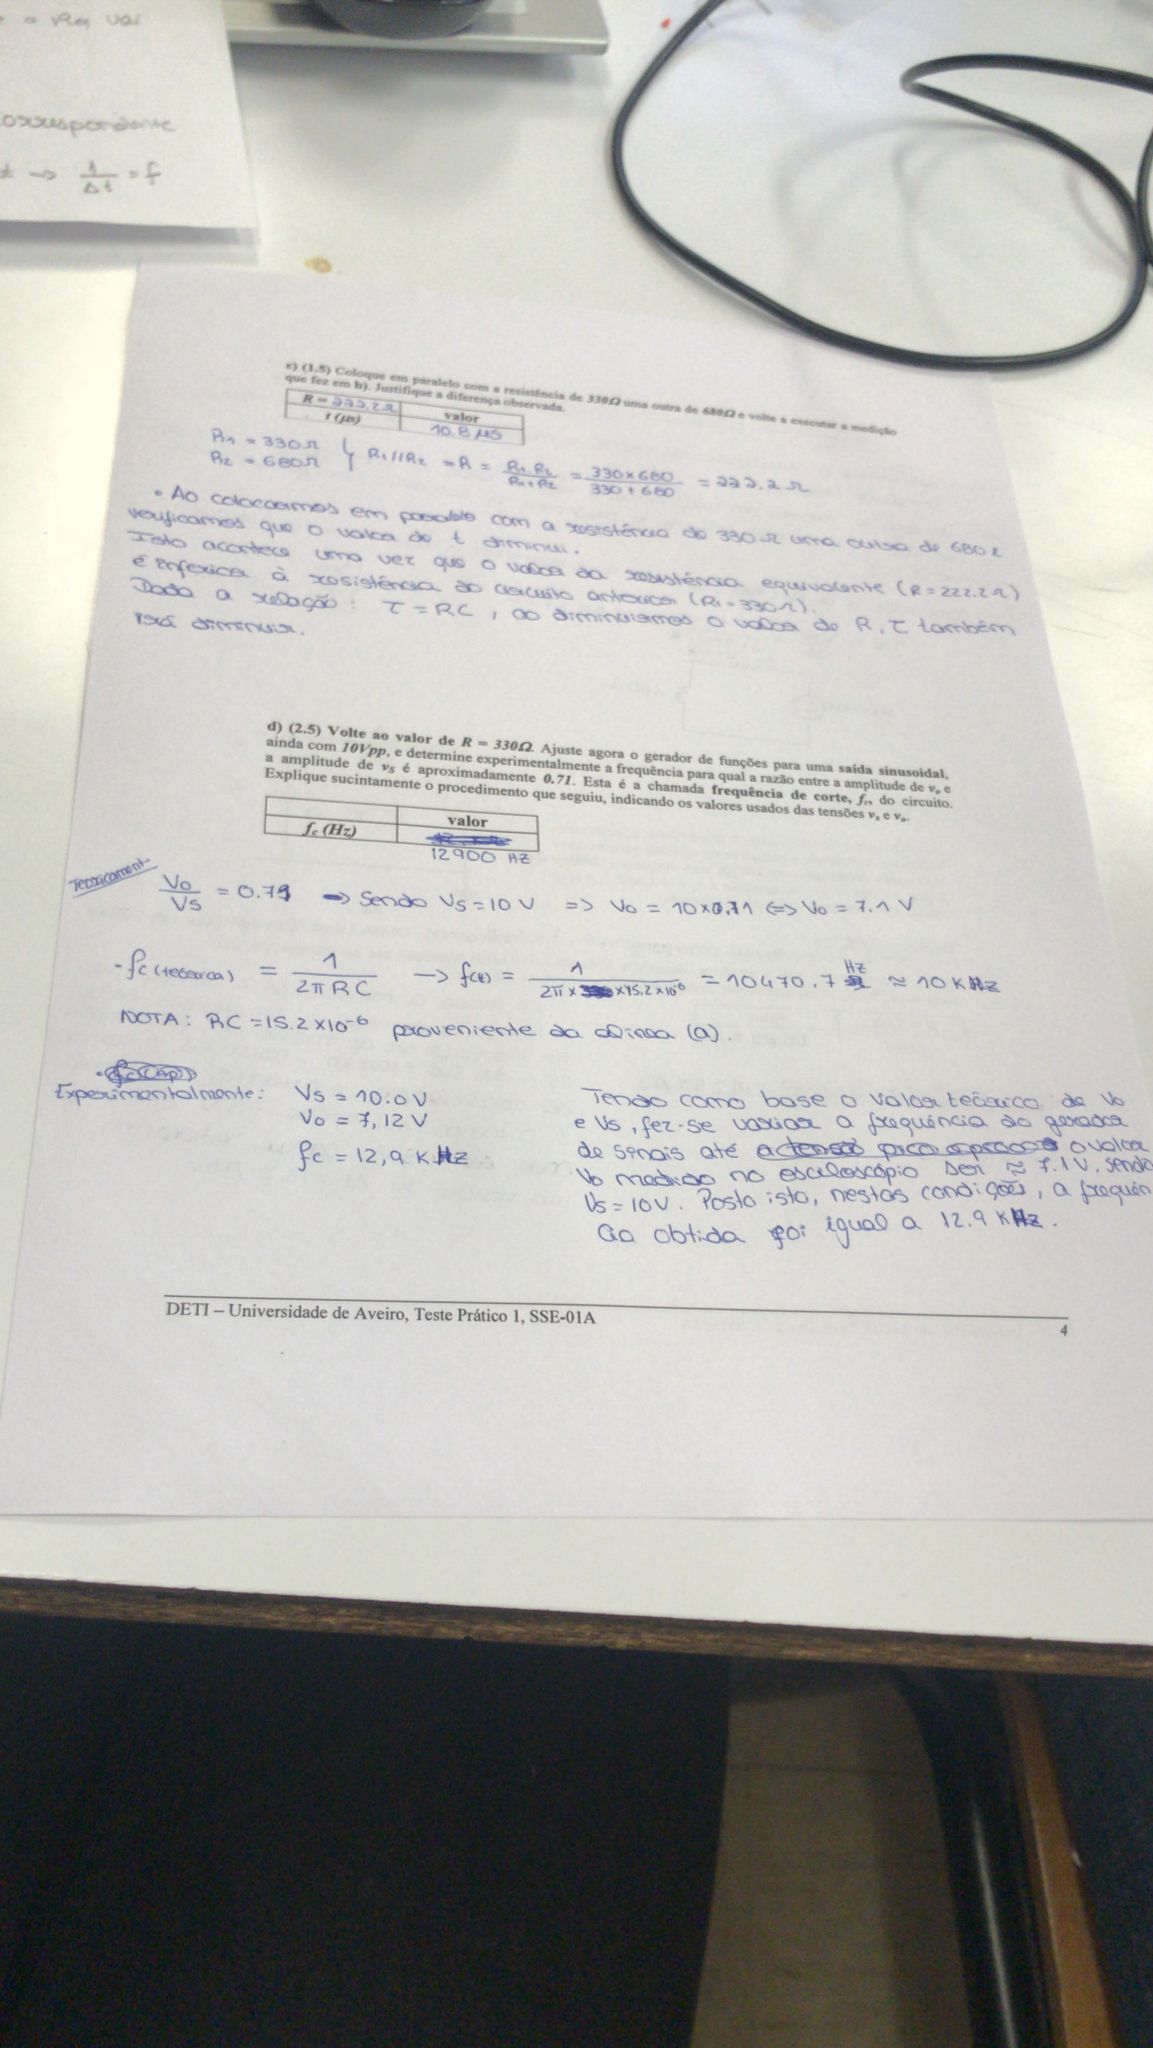 e a Req vai
correspondente
→ 1/Δt = f
c) (1.5) Coloque em paralelo com a resistência de 330Ω uma outra de 680Ω e volte a executar a medição
que fez em b). Justifique a diferença observada.
R = 222.2 Ω valor
t (μs) 10.8 μs
R1 = 330Ω
R2 = 680Ω } R1//R2 = R = R1.R2/R1+R2 = 330×680/330+680 = 222.2 Ω
• Ao colocarmos em paralelo com a resistência de 330 Ω uma outra de 680 Ω
verificamos que o valor de t diminui.
Isto acontece uma vez que o valor da resistência equivalente (R = 222.2 Ω)
é inferior à resistência do circuito anterior (R1 = 330 Ω).
Dada a relação: τ = RC, ao diminuirmos o valor de R, τ também
irá diminuir.
d) (2.5) Volte ao valor de R = 330Ω. Ajuste agora o gerador de funções para uma saída sinusoidal,
ainda com 10Vpp, e determine experimentalmente a frequência para qual a razão entre a amplitude de vo e
a amplitude de vS é aproximadamente 0.71. Esta é a chamada frequência de corte, fc, do circuito.
Explique sucintamente o procedimento que seguiu, indicando os valores usados das tensões vs e vo.
valor
fc (Hz)
12900 Hz
Teoricament.
Vo/Vs = 0.71 → Sendo Vs = 10 V => Vo = 10×0.71 <=> Vo = 7.1 V
- fc (teórica) = 1/2πRC → f(t) = 1/2π × 15.2×10⁻⁶ = 10470.7 Hz ≈ 10 KHz
NOTA: RC = 15.2×10⁻⁶ proveniente da alínea (a).
Experimentalmente: Vs = 10.0 V
Vo = 7,12 V
fc = 12,9 KHz
Tendo como base o valor teórico de Vo
e Vs, fez-se variar a frequência do gerador
de sinais até o valor
Vo medido no osciloscópio ser ≈ 7.1 V, sendo
Vs = 10 V. Posto isto, nestas condições, a frequên
cia obtida foi igual a 12.9 KHz.
DETI – Universidade de Aveiro, Teste Prático 1, SSE-01A
4